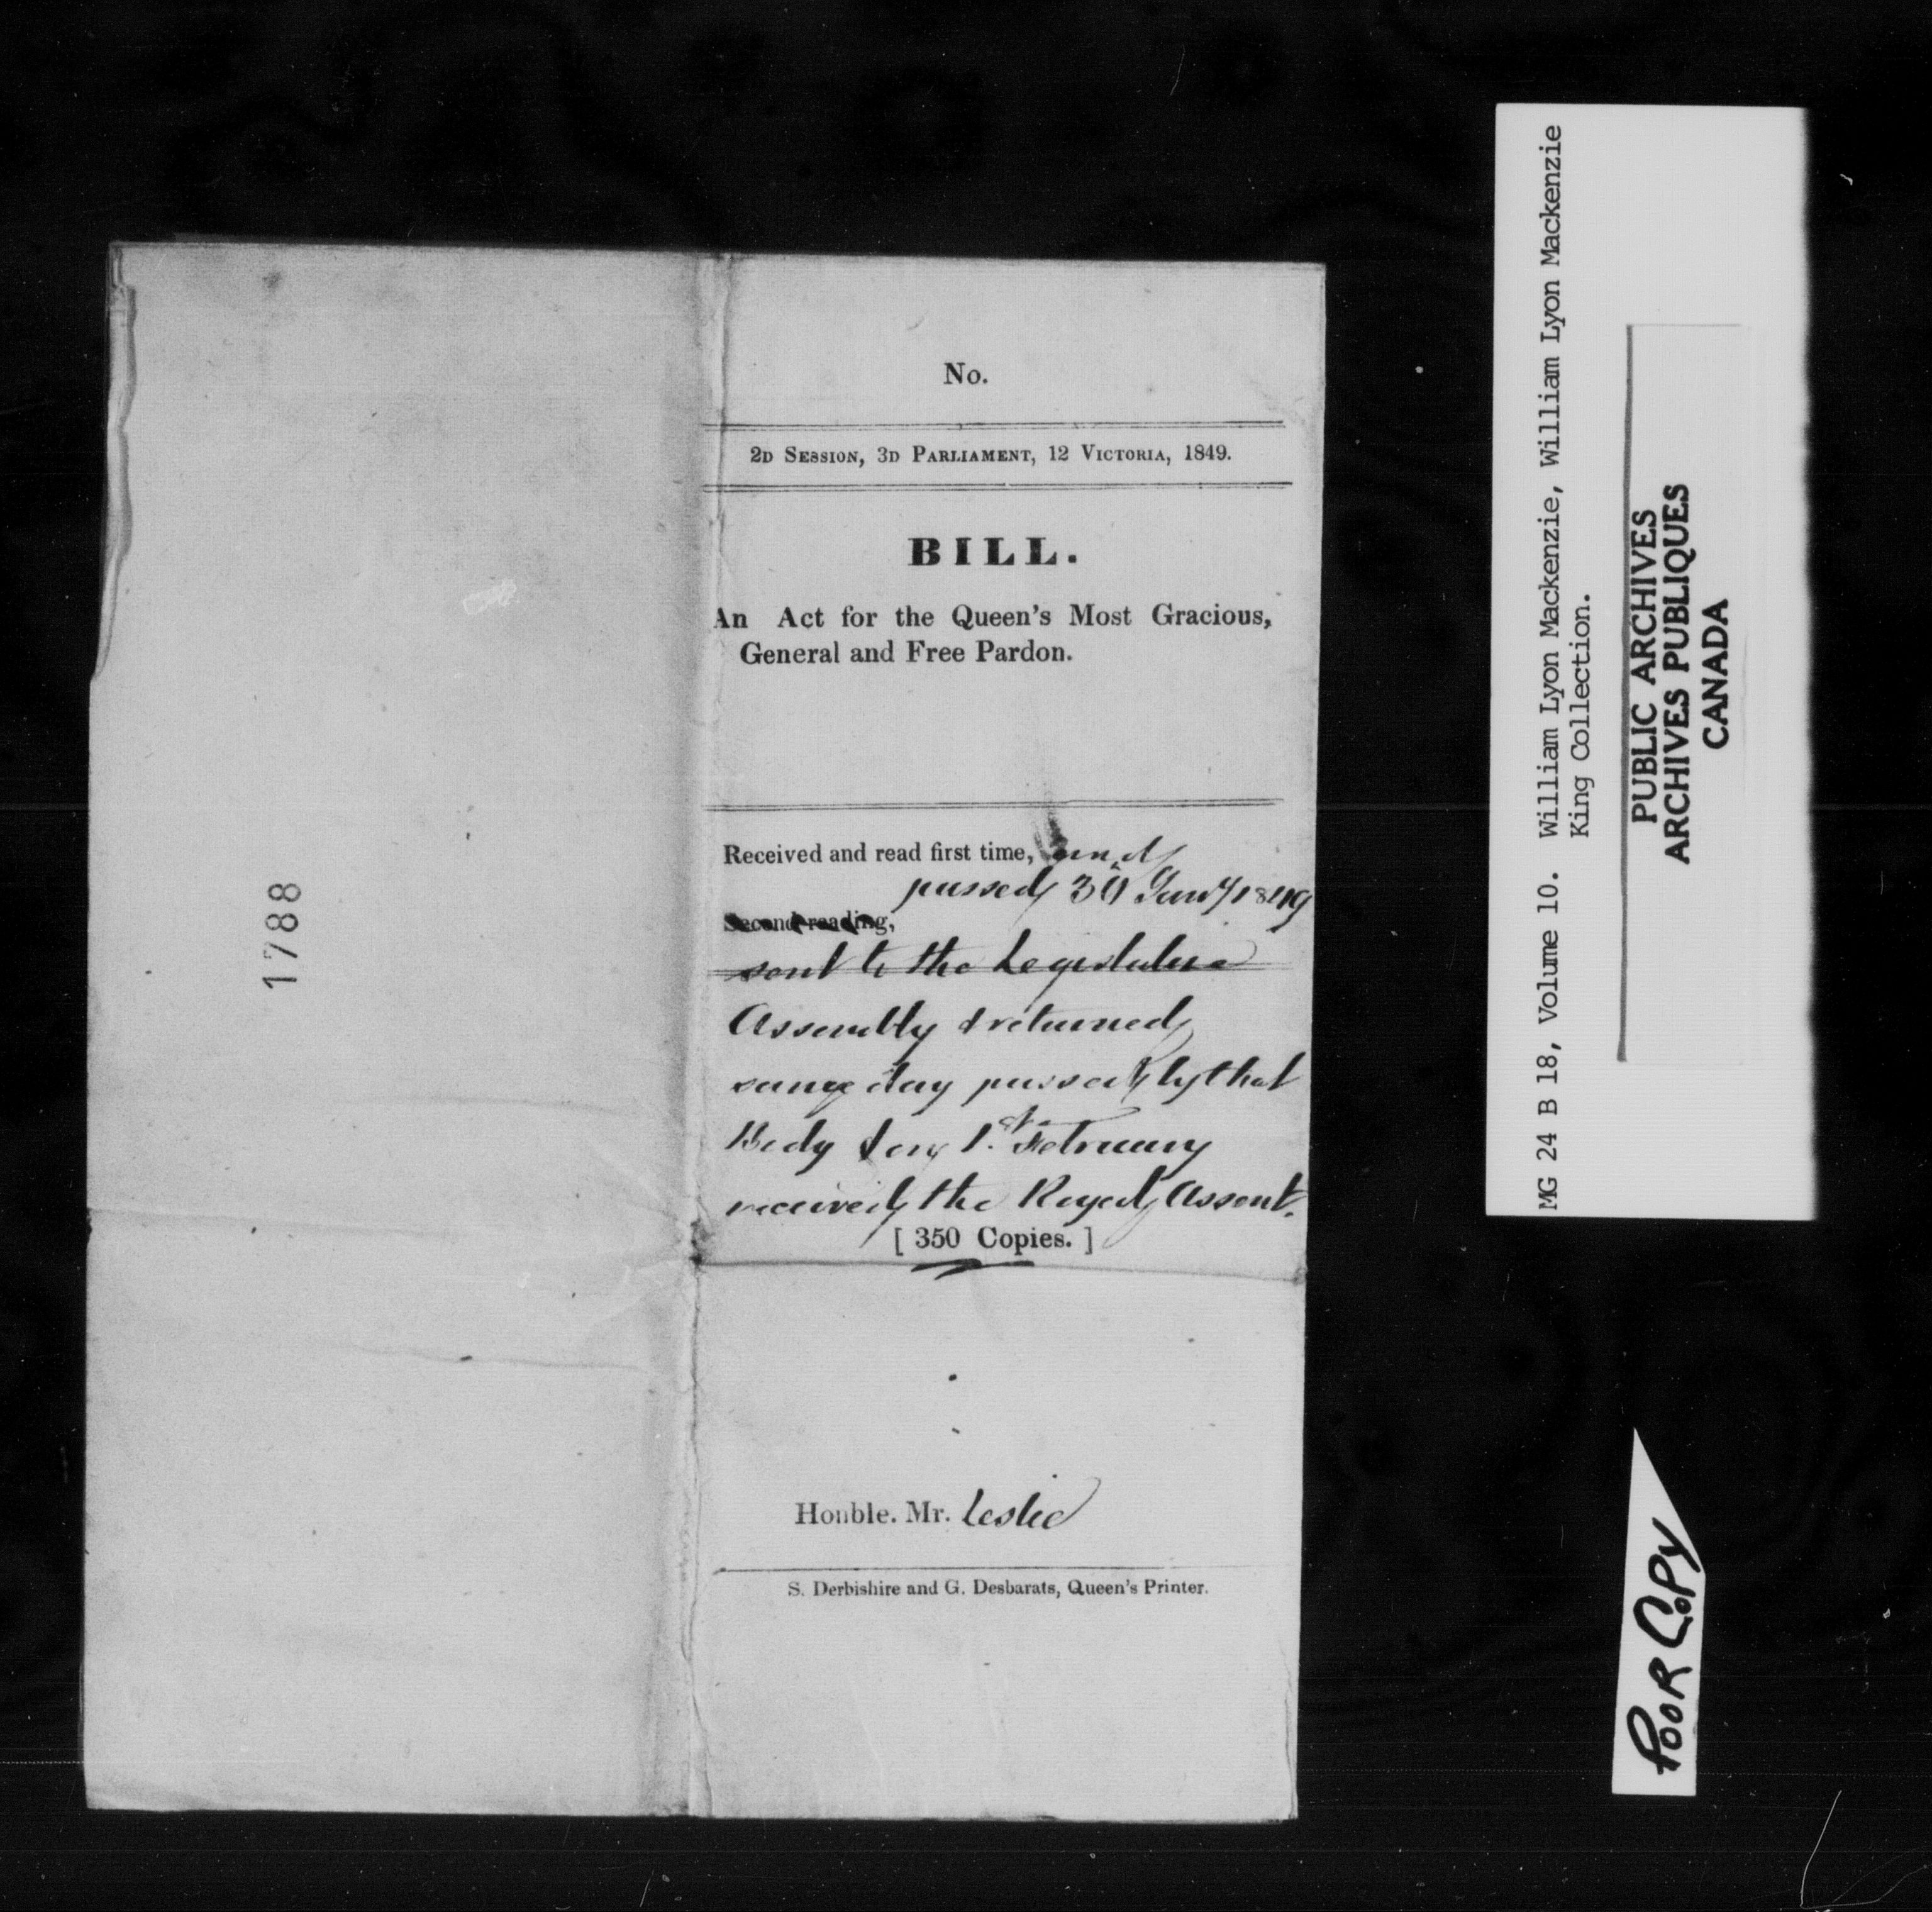 No.
2D SESSION, 3D PARLIAMENT, 12 VICTORIA, 1849.
BILL.
An Act for the Queen's Most Gracious,
General and Free Pardon.
Received and read first time, and
passed 30 Jany 1849
Second reading,
sent to the Legislative
Assembly & returned
same day passed by that
Body & on 1.st February
received the Royal Assent.
[ 350 Copies. ]
Honble. Mr. Leslie
S. Derbishire and G. Desbarats, Queen's Printer.
1788
MG 24 B 18, Volume 10. William Lyon Mackenzie, William Lyon Mackenzie
King Collection.
PUBLIC ARCHIVES
ARCHIVES PUBLIQUES
CANADA
POOR COPY